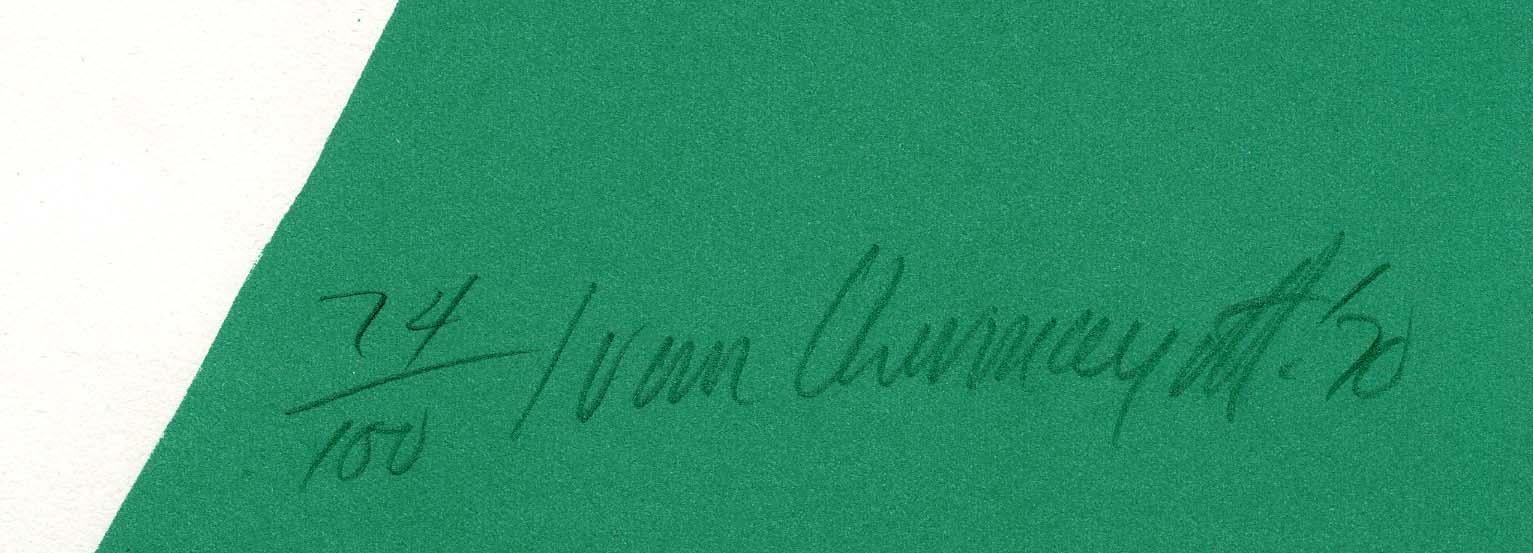 74
100
Ivan Chermayeff. '70